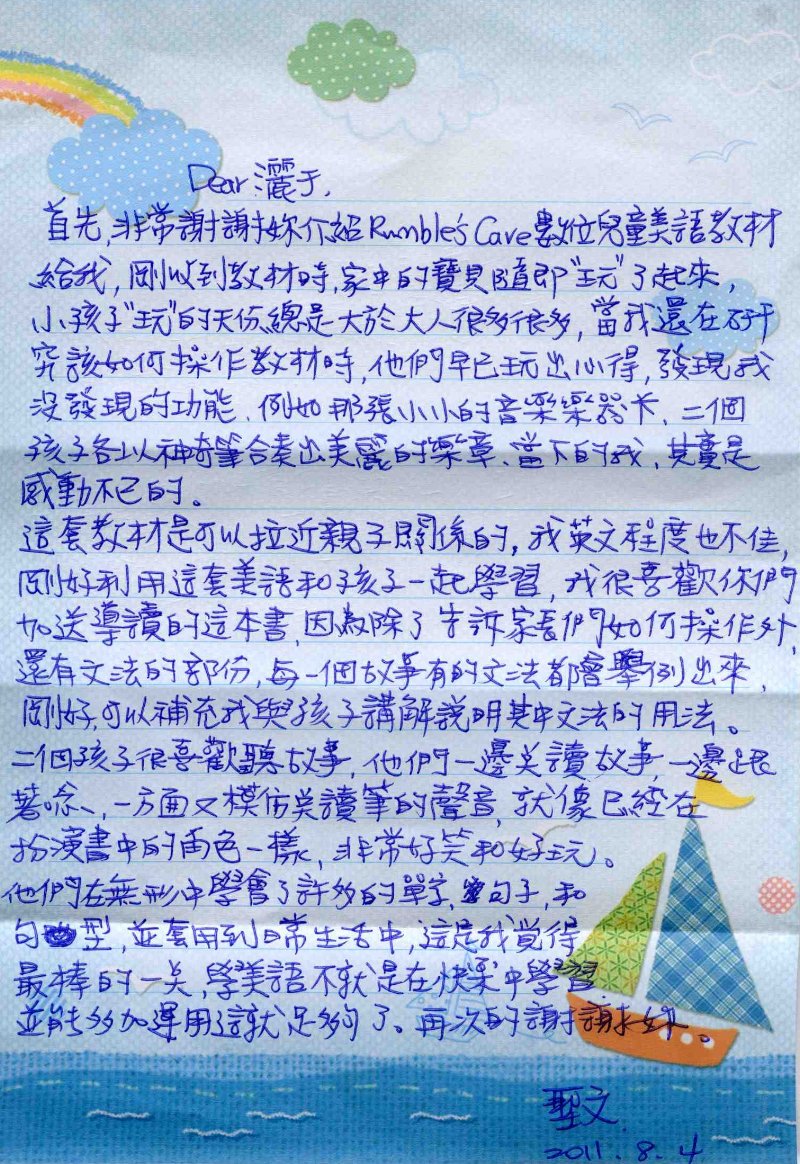 Dear 灑于,
首先,非常謝謝妳介紹Rumble's Cave數位兒童美語教材
給我,剛收到教材時,家中的寶貝隨即"玩"了起來,
小孩子"玩"的天份總是大於大人很多很多,當我還在研
究該如何操作教材時,他們早已玩出心得,發現我
沒發現的功能、例如那張小小的音樂樂器卡,二個
孩子各以神奇筆合奏出美麗的樂章、當下的我,其實是
感動不已的。
這套教材是可以拉近親子關係的,我英文程度也不佳,
剛好利用這套美語和孩子一起學習,我很喜歡你們
加送導讀的這本書,因為除了告訴家長們如何操作外,
還有文法的部份,每一個故事有的文法都會舉例出來,
剛好,可以補充我與孩子講解說明其中文法的用法。
二個孩子很喜歡聽故事,他們一邊点讀故事,一邊跟
著唸、一方面又模仿点讀筆的聲音,就像已經在
扮演書中的角色一樣,非常好笑和好玩。
他們在無形中學會了許多的單字,句子,和
句型,並套用到日常生活中,這是我覺得
最棒的一点,學美語不就是在快樂中學習
並能多加運用這就足夠了。再次的謝謝妳。
聖文.
2011.8.4